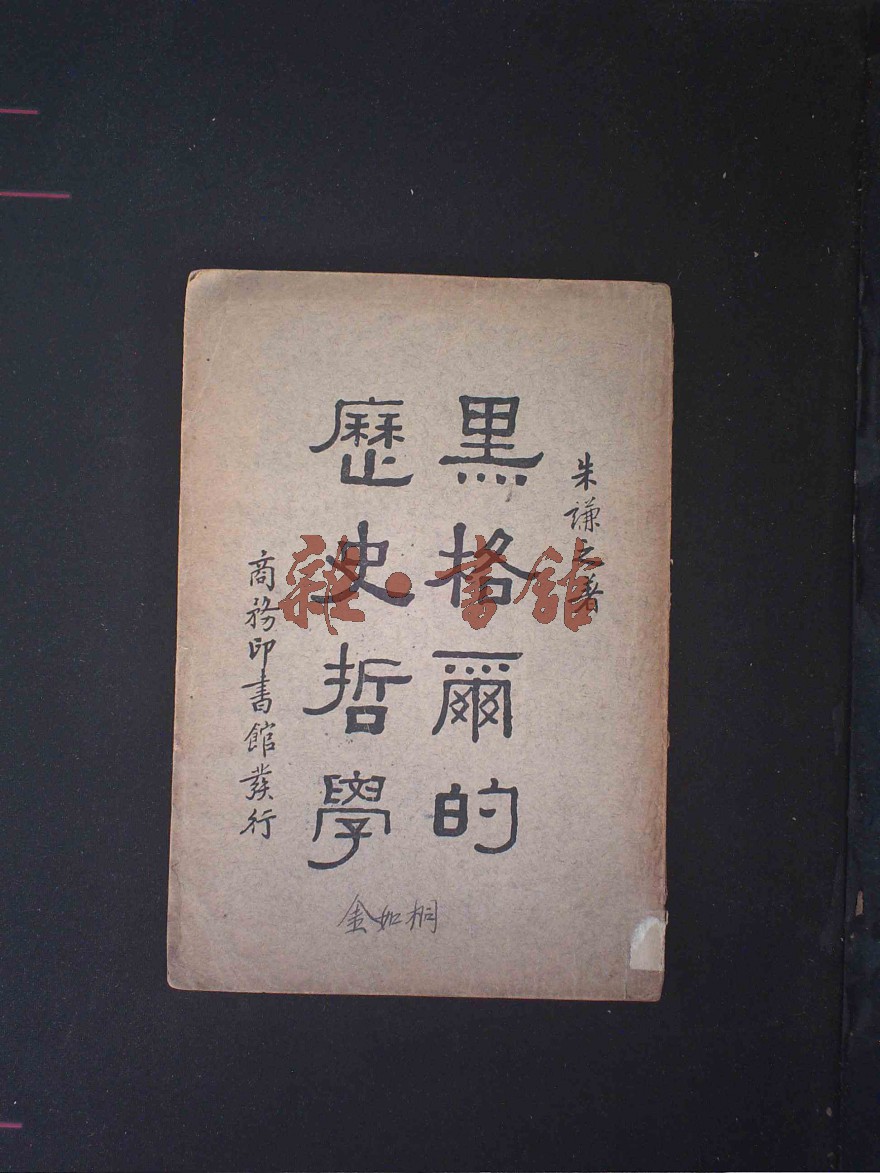 朱謙之著
黑格爾的
歷史哲學
商務印書館發行
金如桐
雜·書館